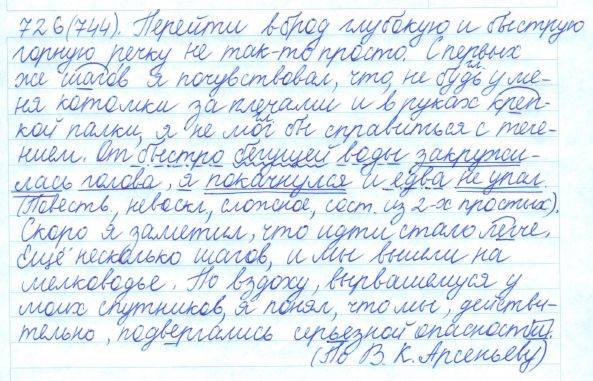 726(744). Перейти вброд глубокую и быструю
горную речку не так-то просто. С первых
же шагов я почувствовал, что, не будь у ме-
ня котомки за плечами и в руках креп-
кой палки, я не мог бы справиться с тече-
нием. От быстро бегущей воды закружи-
лась голова, я покачнулся и едва не упал.
(Повеств, невоскл, сложное, сост. из 2-х простых).
Скоро я заметил, что идти стало легче.
Ещё несколько шагов, и мы вышли на
мелководье. По вздоху, вырвавшемуся у
моих спутников, я понял, что мы, действи-
тельно, подвергались серьезной опасности.
(По В. К. Арсеньеву)